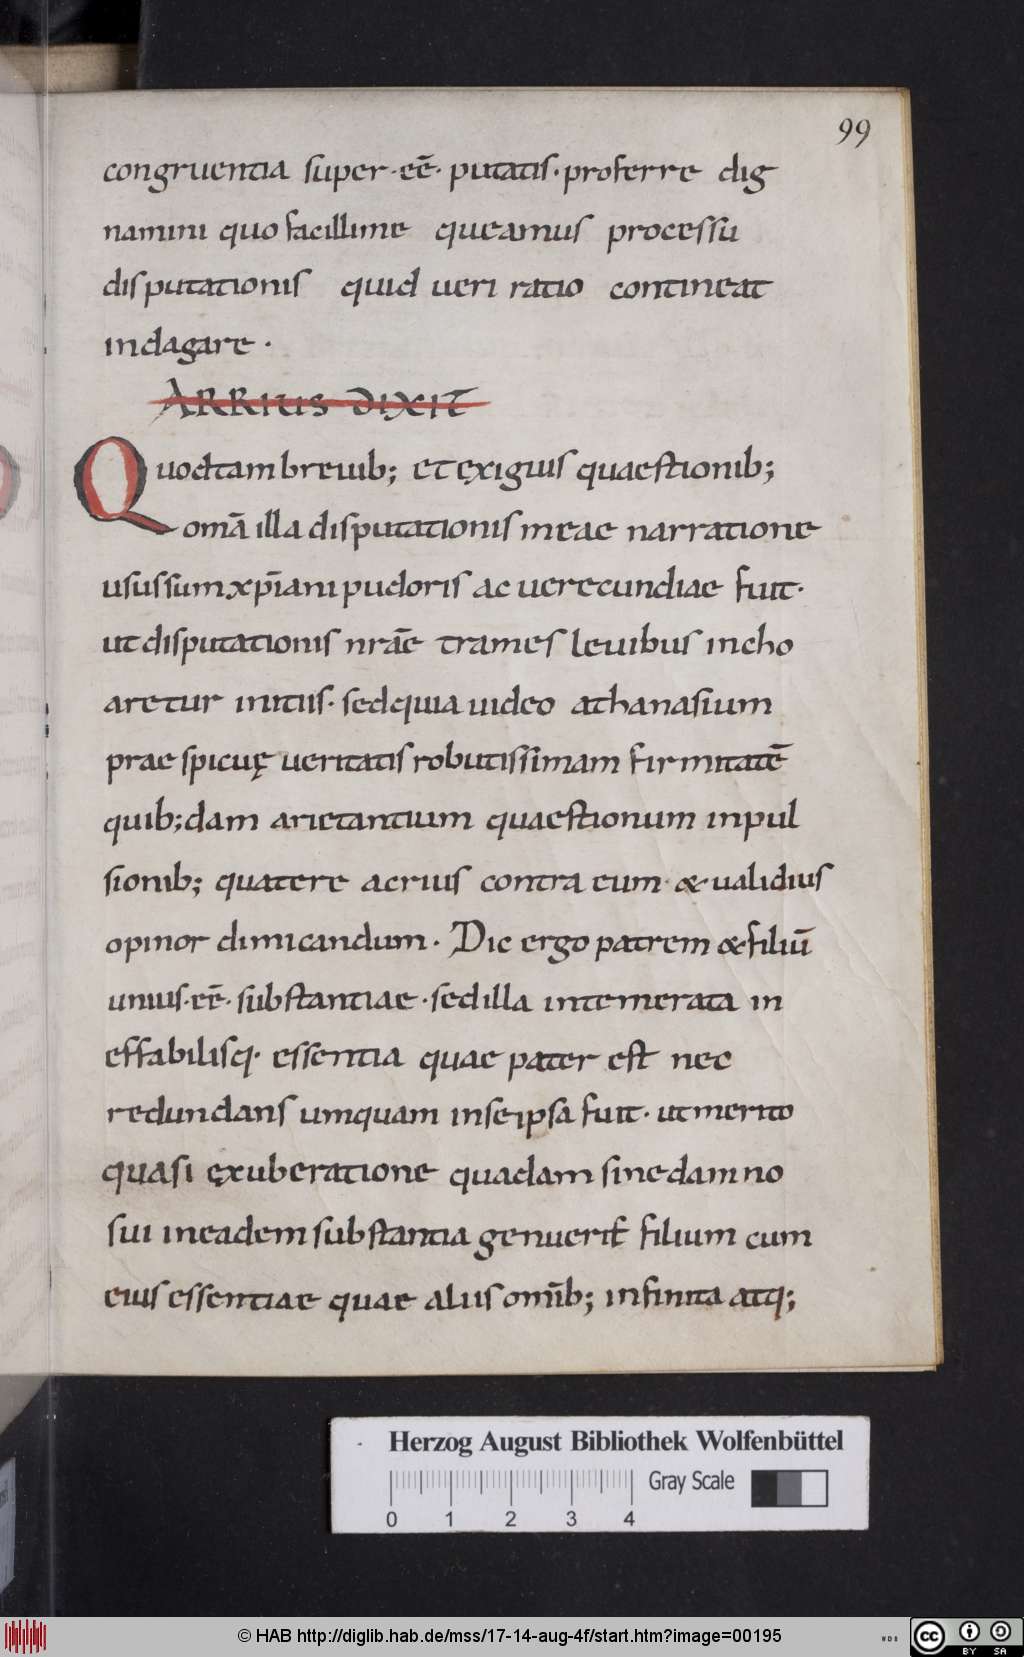 99
congruentia super · eē · putatis · proferre dig
namini quo facillime queamus processu
disputationis quid ueri ratio contineat
indagare ·
ARRIUS DIXIT
Quod tam breuib; et exiguis quaestionib;
omā illa disputationis meae narratione
usus sum xp̄iani pudoris ac uerecundiae fuit ·
ut disputationis nrāe trames leuibus incho
aretur initiis · sed quia uideo athanasium
praespicuę ueritatis robutissimam firmitatē
quib;dam arietantium quaestionum inpul
sionib; quatere acrius contra eum · & ualidius
opinor dimicandum · Dic ergo patrem & filiū
unius · eē · substantiae · sed illa intemerata in
effabilisq · essentia quae pater est nec
redundans umquam in se ipsa fuit · ut merito
quasi ęxuberatione quadam sine damno
sui in eadem substantia genuerit filium cum
eius essentiae quae aliis omīb; infinita atq;
Herzog August Bibliothek Wolfenbüttel
Gray Scale
0 1 2 3 4
© HAB http://diglib.hab.de/mss/17-14-aug-4f/start.htm?image=00195
WDB
cc BY SA